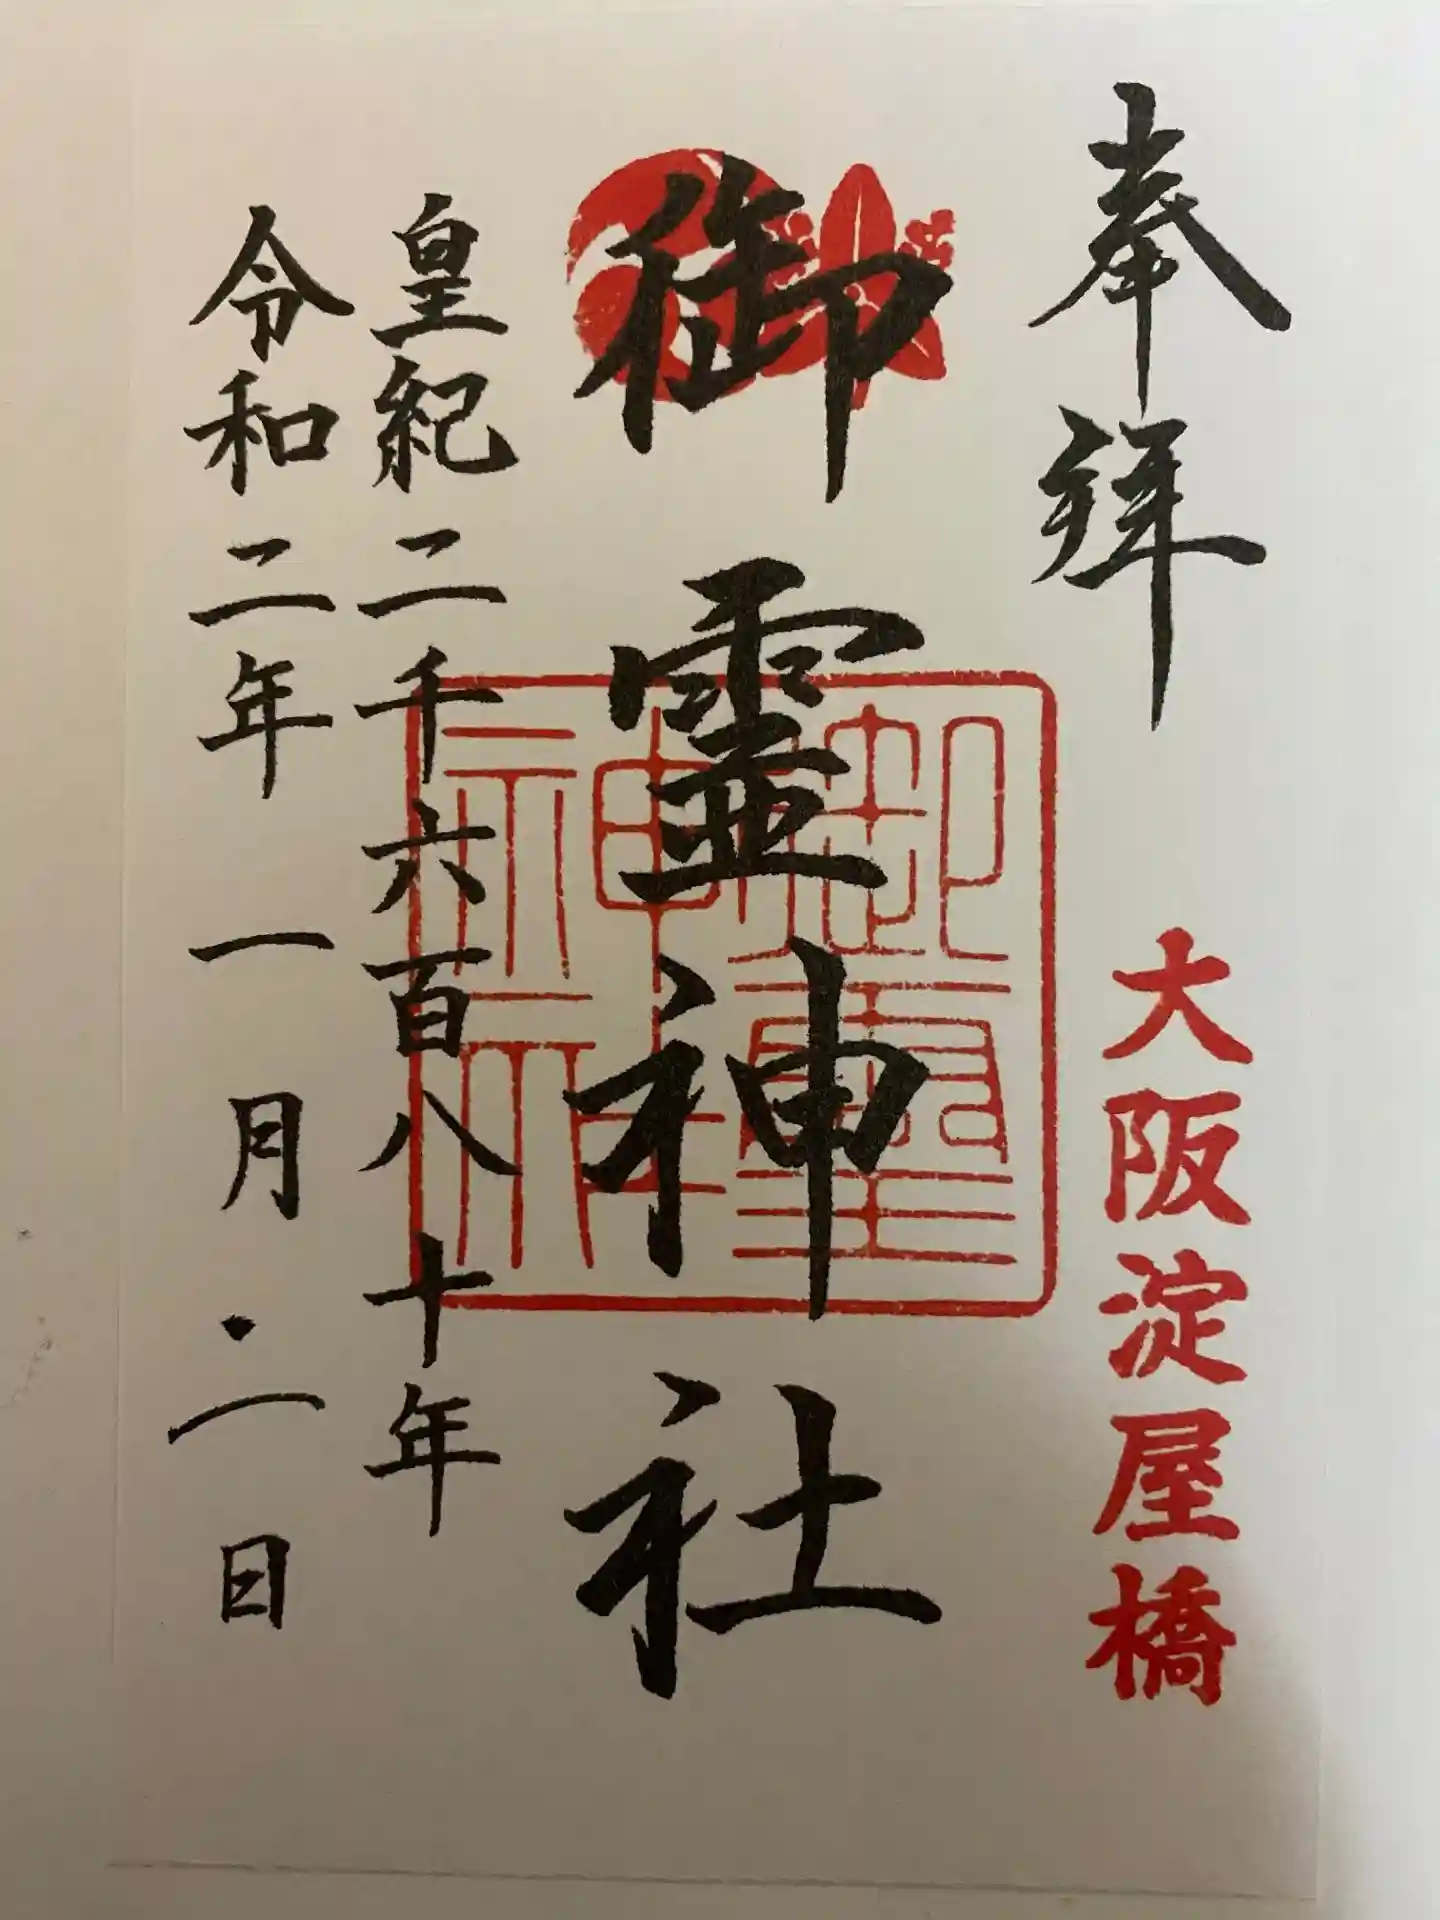 奉拝
大阪淀屋橋
御霊神社
御霊神社
皇紀二千六百八十年
令和二年一月二日